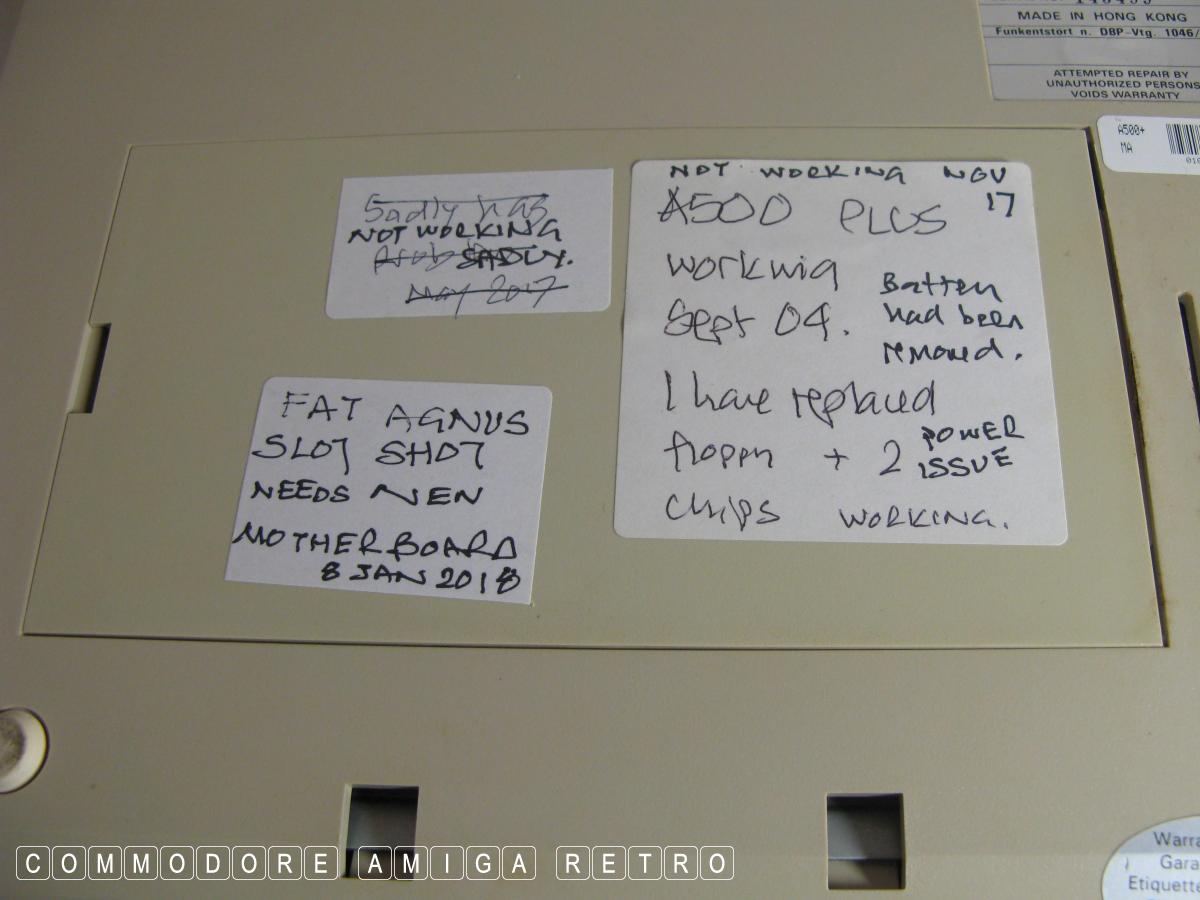 MADE IN HONG KONG
Funkentstort n. DBP-Vtg. 1046/
ATTEMPTED REPAIR BY
UNAUTHORIZED PERSONS
VOIDS WARRANTY
A500+
MA
Sadly has
NOT WORKING
SADLY.
May 2017
NOT WORKING NOV
17
A500 PLUS
working
Sept 04.
Battery
had been
removed.
I have replaced
floppy + 2
POWER
ISSUE
chips WORKING.
FAT AGNUS
SLOT SHOT
NEEDS NEW
MOTHERBOARD
8 JAN 2018
Warra
Gara
Etiquette
COMMODORE AMIGA RETRO